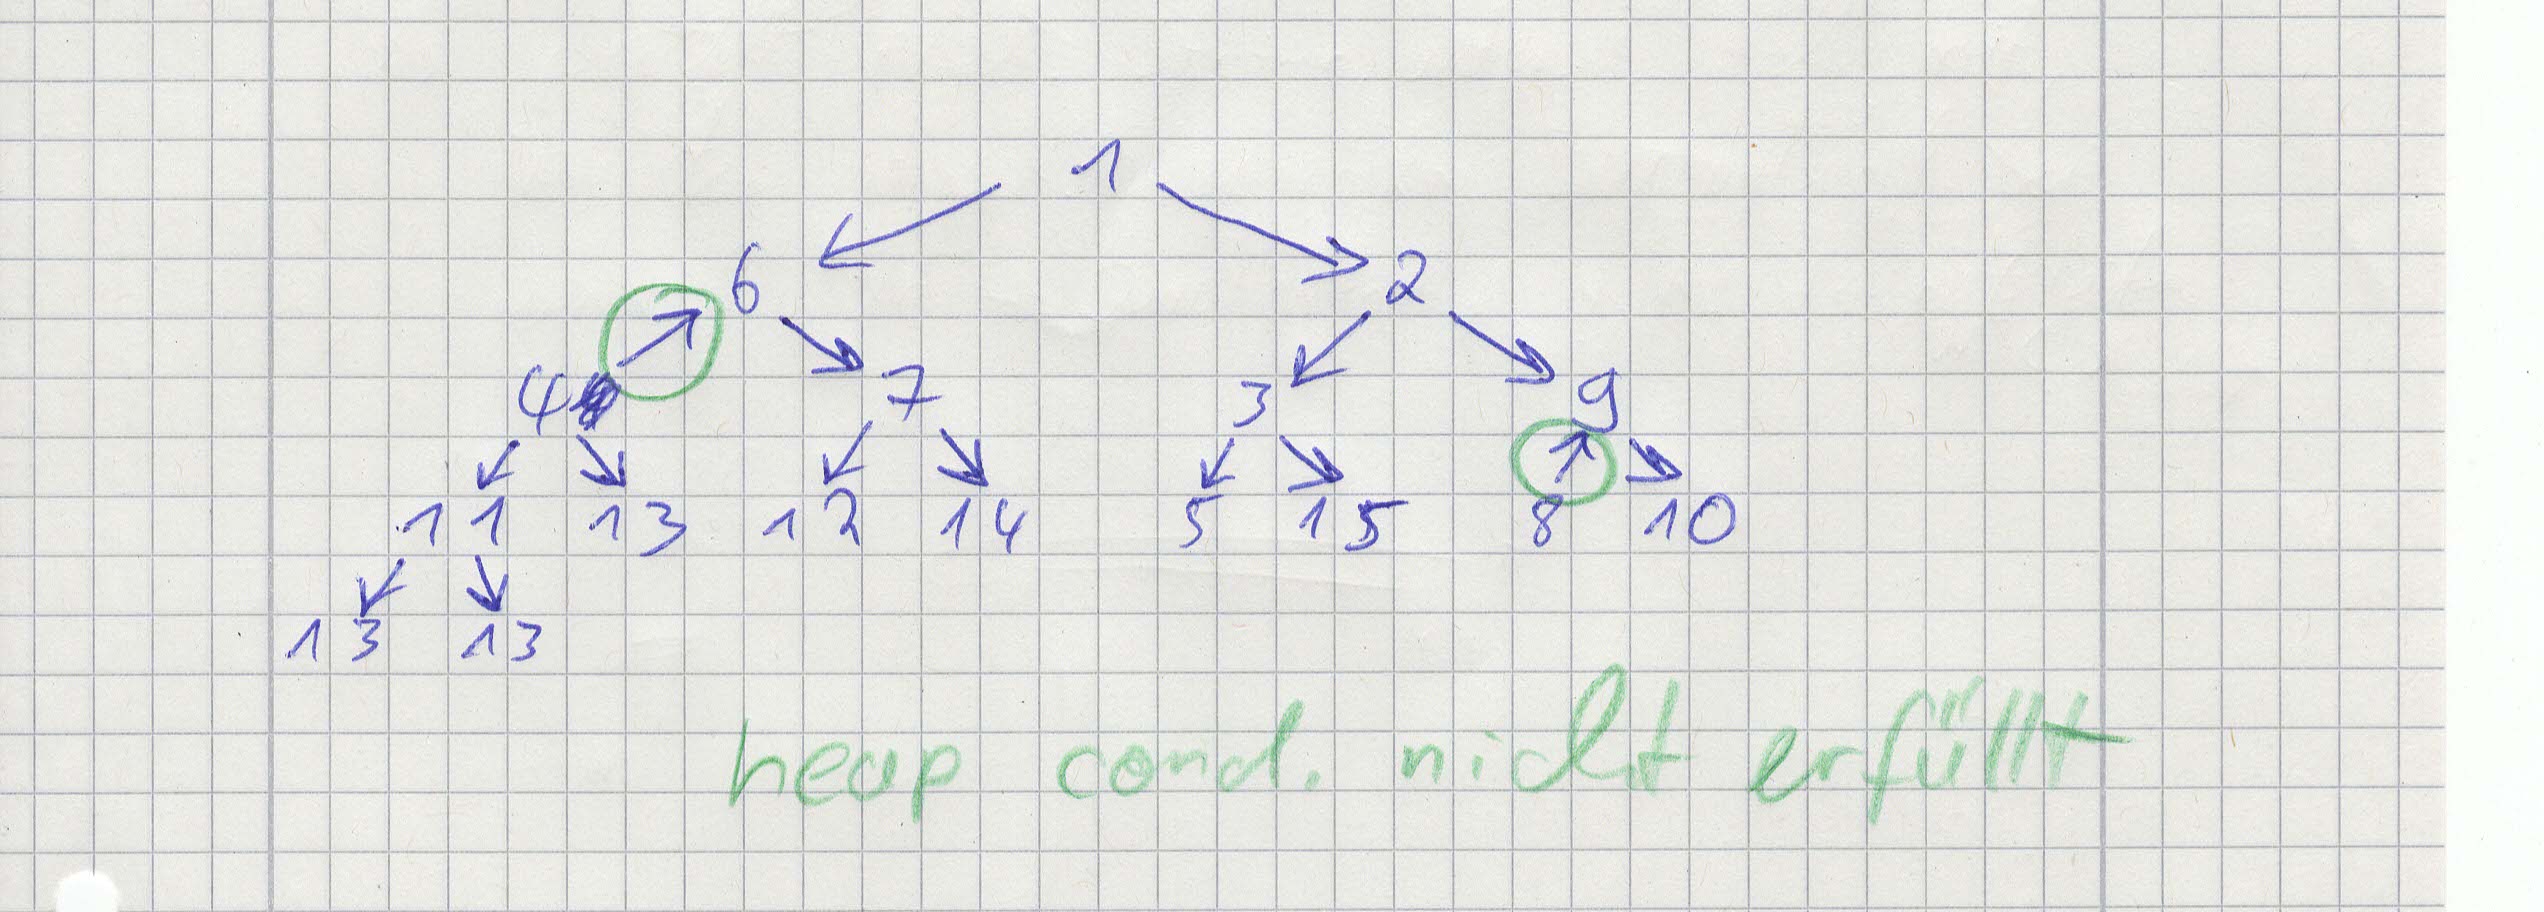 1
6 2
4 7 3 9
11 13 12 14 5 15 8 10
13 13
heap cond. nicht erfüllt